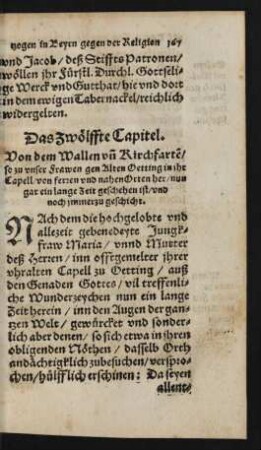 tzogen in Beyen gegen der Religien 167
vnd Jacob/ deß Stiffts Patronen/
wöllen jhr Fürstl. Durchl. Gottseli-
ge Werck vnd Gutthat/ hie vnd dort
in dem ewigen Tabernackel/ reichlich
widergelten.
Das Zwölffte Capitel.
Von dem Wallen vñ Kirchfartē/
so zu vnser Frawen gen Alten Oetting in ihr
Capell von ferren vnd nahen Orten her/ nun
gar ein lange Zeit geschehen ist/ vnd
noch jmmerzu geschicht.
NAch dem die hochgelobte vnd
allezeit gebenedeyte Jungk-
fraw Maria/ vnnd Mutter
deß Herren/ inn offtgemelter jhrer
vhralten Capell zu Oetting/ auß
den Genaden Gottes/ vil treffenli-
che Wunderzeychen nun ein lange
Zeit herein/ inn den Augen der gan-
tzen Welt/ gewürcket vnd sonder-
lich aber denen/ so sich etwa in jhren
obligenden Nöthen/ dasselb Orth
andächtigklich zubesuchen/ verspro-
chen/ hülfflich erschinen: Da seyen
allent-